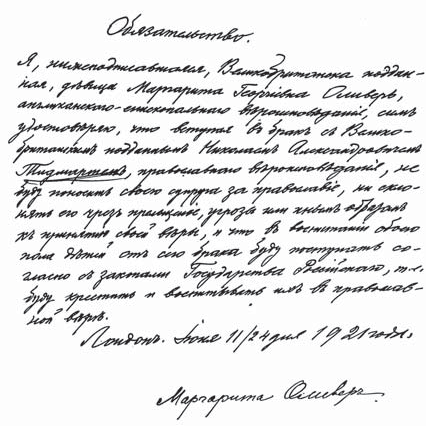 Обязательство.
Я, нижеподписавшаяся, Великобританска поддан-
ная, дѣвица Маргарита Георгіевна Оливеръ,
англиканского-епископального вѣроисповѣданія, симъ
удостовѣряю, что вступая въ бракъ съ Велико-
британскимъ подданнымъ Николаемъ Александровичемъ
Тидмаршемъ, православного вѣроисповѣданія, не
буду поносить своего супруга за православіе, ни скло-
нять его чрезъ прельщеніе, угрозы или инымъ образомъ
къ принятію своей вѣры, и что въ воспитаніи обоего
пола дѣтей отъ сего брака буду поступать со-
гласно съ законами Государства Россійскаго, т.е.
буду крестить и воспитывать ихъ въ православ-
ной вѣрѣ.
Лондонъ. Іюня 11/24 дня 1921 года.
Маргарита Оливеръ.